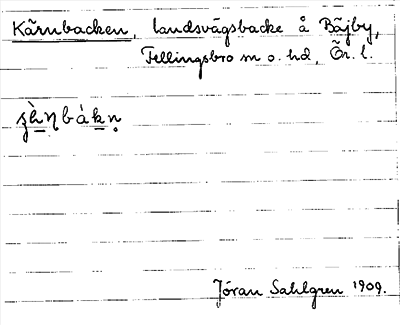 Kärnbacken, landsvägsbacke å Bäjby,
Fellingsbro sn o. hd, Ör. l.
Jöran Sahlgren 1909.